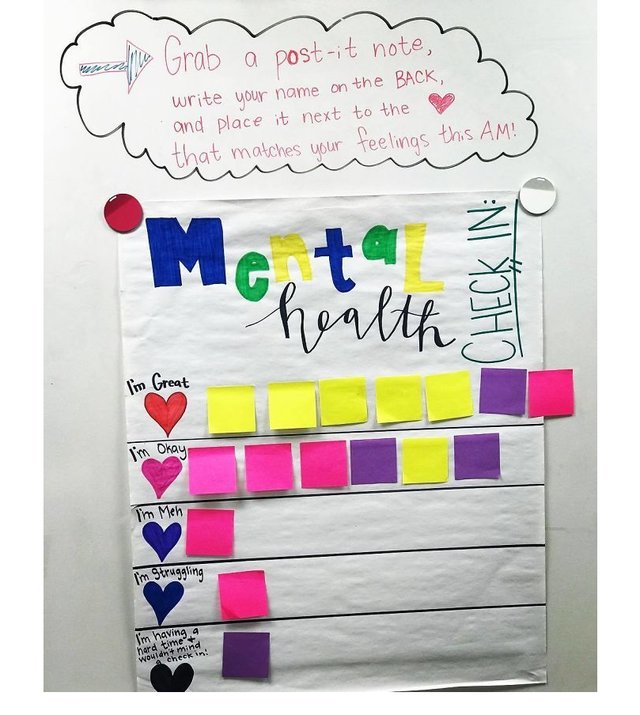 Grab a post-it note,
write your name on the BACK,
and place it next to the
that matches your feelings this AM!
Mental
health
CHECK IN:
I'm Great
I'm Okay
I'm Meh
I'm Struggling
I'm having a
hard time +
wouldn't mind
a check in!